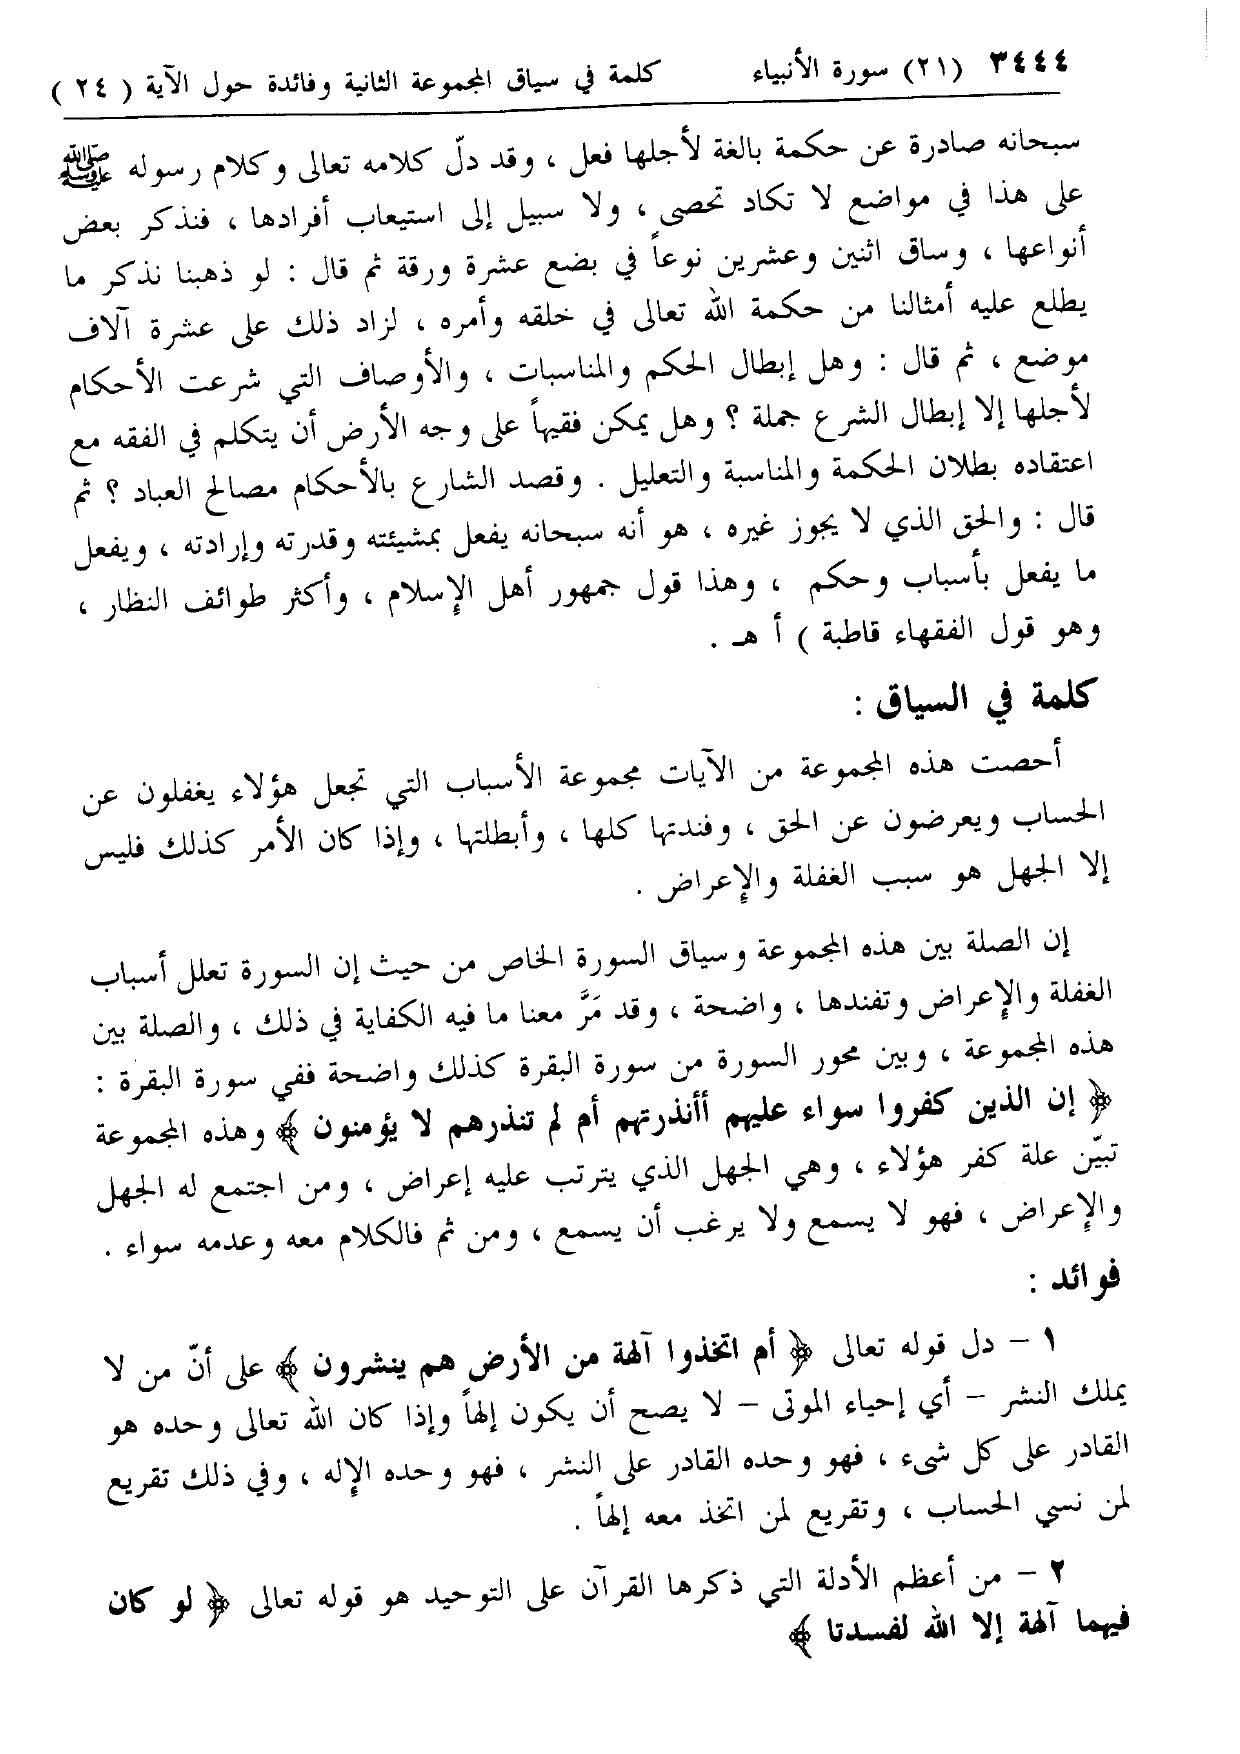 ٣٤٤٤ (٢١) سورة الأنبياء كلمة في سياق المجموعة الثانية وفائدة حول الآية ( ٢٤ )
سبحانه صادرة عن حكمة بالغة لأجلها فعل ، وقد دلّ كلامه تعالى وكلام رسوله ﷺ
على هذا في مواضع لا تكاد تحصى ، ولا سبيل إلى استيعاب أفرادها ، فنذكر بعض
أنواعها ، وساق اثنين وعشرين نوعاً في بضع عشرة ورقة ثم قال : لو ذهبنا نذكر ما
يطلع عليه أمثالنا من حكمة الله تعالى في خلقه وأمره ، لزاد ذلك على عشرة آلاف
موضع ، ثم قال : وهل إبطال الحكم والمناسبات ، والأوصاف التي شرعت الأحكام
لأجلها إلا إبطال الشرع جملة ؟ وهل يمكن فقيهاً على وجه الأرض أن يتكلم في الفقه مع
اعتقاده بطلان الحكمة والمناسبة والتعليل . وقصد الشارع بالأحكام مصالح العباد ؟ ثم
قال : والحق الذي لا يجوز غيره ، هو أنه سبحانه يفعل بمشيئته وقدرته وإرادته ، ويفعل
ما يفعل بأسباب وحكم ، وهذا قول جمهور أهل الإسلام ، وأكثر طوائف النظار ،
وهو قول الفقهاء قاطبة ) أ هـ .
كلمة في السياق :
أحصت هذه المجموعة من الآيات مجموعة الأسباب التي تجعل هؤلاء يغفلون عن
الحساب ويعرضون عن الحق ، وفندتها كلها ، وأبطلتها ، وإذا كان الأمر كذلك فليس
إلا الجهل هو سبب الغفلة والإعراض .
إن الصلة بين هذه المجموعة وسياق السورة الخاص من حيث إن السورة تعلل أسباب
الغفلة والإعراض وتفندها ، واضحة ، وقد مَرَّ معنا ما فيه الكفاية في ذلك ، والصلة بين
هذه المجموعة ، وبين محور السورة من سورة البقرة كذلك واضحة ففي سورة البقرة :
﴿ إن الذين كفروا سواء عليهم أأنذرتهم أم لم تنذرهم لا يؤمنون ﴾ وهذه المجموعة
تبيّن علة كفر هؤلاء ، وهي الجهل الذي يترتب عليه إعراض ، ومن اجتمع له الجهل
والإعراض ، فهو لا يسمع ولا يرغب أن يسمع ، ومن ثم فالكلام معه وعدمه سواء .
فوائد :
١ – دل قوله تعالى ﴿ أم اتخذوا آلهة من الأرض هم ينشرون ﴾ على أنّ من لا
يملك النشر – أي إحياء الموتى – لا يصح أن يكون إلهاً وإذا كان الله تعالى وحده هو
القادر على كل شىء ، فهو وحده القادر على النشر ، فهو وحده الإله ، وفي ذلك تقريع
لمن نسي الحساب ، وتقريع لمن اتخذ معه إلهاً .
٢ – من أعظم الأدلة التي ذكرها القرآن على التوحيد هو قوله تعالى ﴿ لو كان
فيهما آلهة إلا الله لفسدتا ﴾